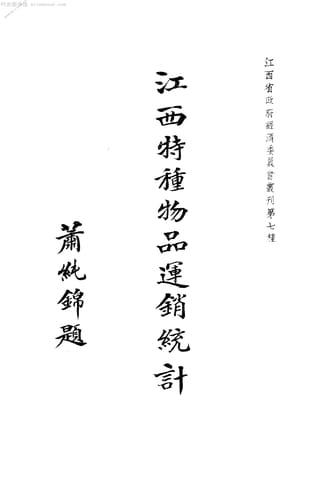 江西省政府經濟委員會叢刊第七種
江西特種物品運銷統計
蕭純錦題